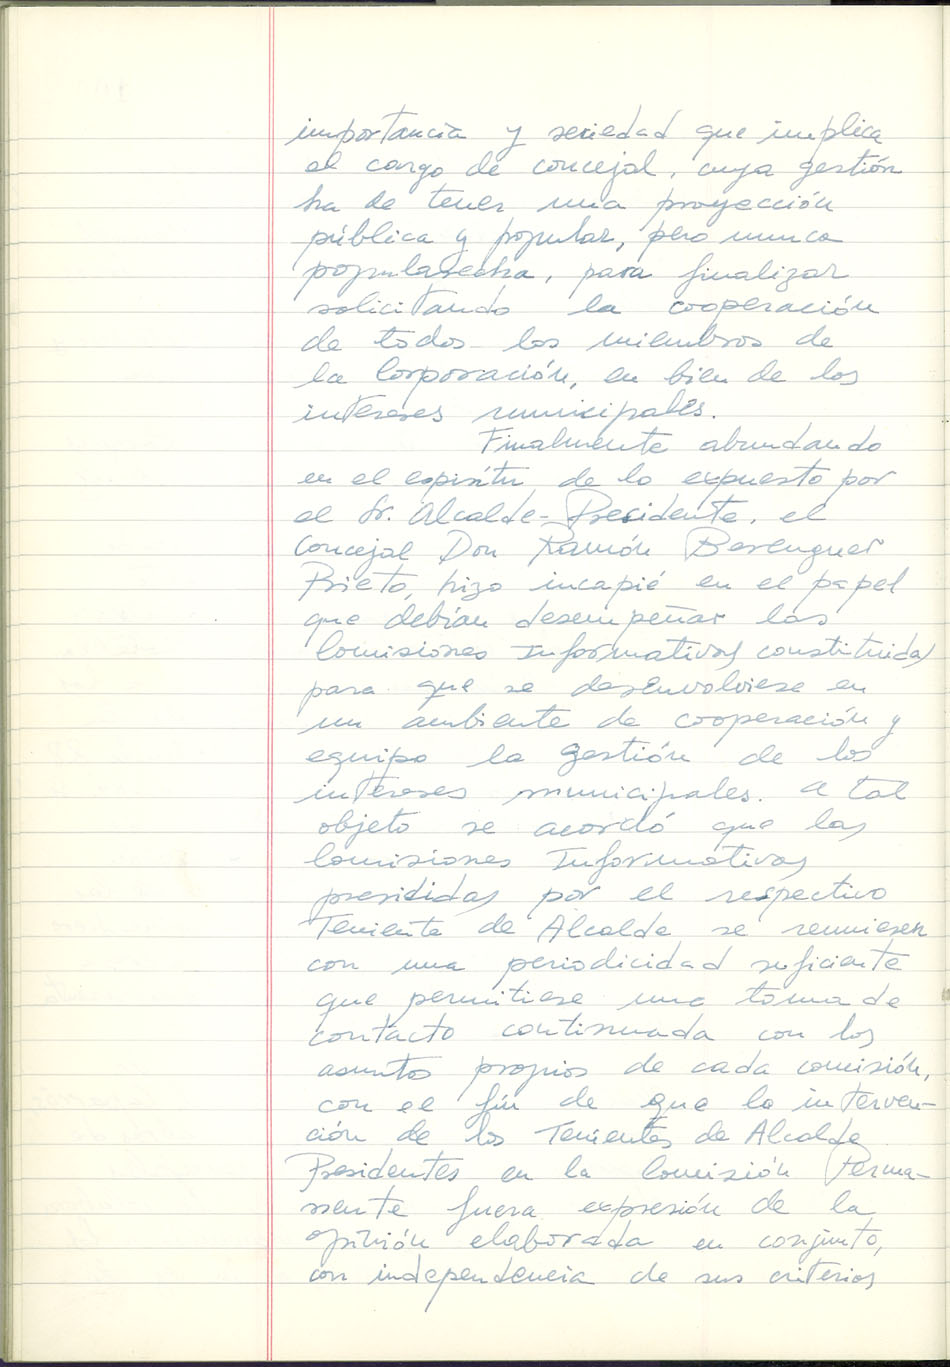 importancia y seriedad que implica
el cargo de concejal, cuya gestión
ha de tener una proyección
pública y popular, pero nunca
popularecha, para finalizar
solicitando la cooperación
de todos los miembros de
la Corporación, en bien de los
intereses municipales.
Finalmente abundando
en el espíritu de lo expuesto por
el Sr. Alcalde-Presidente, el
Concejal Don Ramón Berenguer
Prieto, hizo incapié en el papel
que debían desempeñar las
Comisiones Informativas constituidas
para que se desenvolviese en
un ambiente de cooperación y
equipo la gestión de los
intereses municipales. A tal
objeto se acordó que las
Comisiones Informativas
presididas por el respectivo
Teniente de Alcalde se reuniesen
con una periodicidad suficiente
que permitiese una toma de
contacto continuada con los
asuntos propios de cada comisión,
con el fin de que la interven-
ción de los Tenientes de Alcalde
Presidentes en la Comisión Perma-
nente fuera expresión de la
opinión elaborada en conjunto,
con independencia de sus criterios